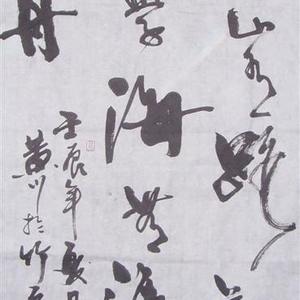 山有路
学海無涯
舟
壬辰年夏月
黄川於竹